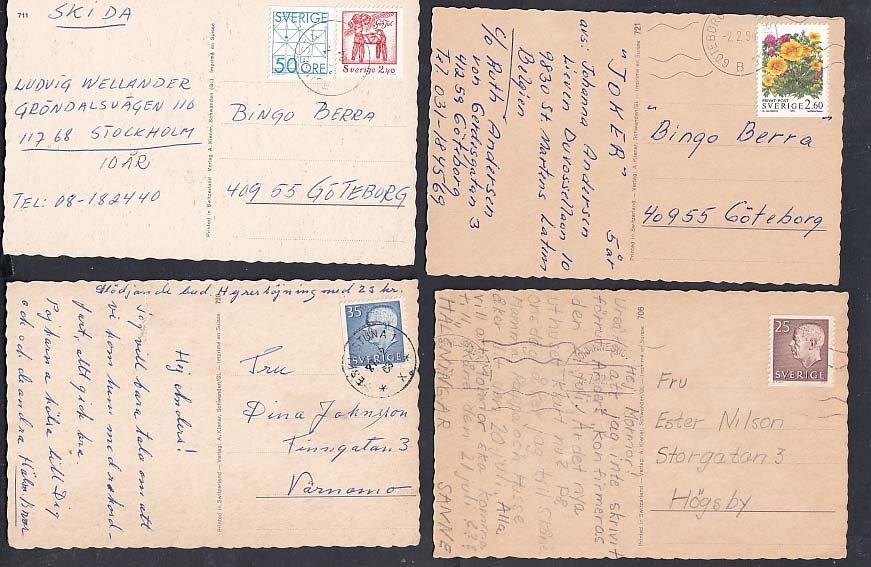 711
SKIDA
LUDVIG WELLANDER
GRÖNDALSVÄGEN 110
117 68 STOCKHOLM
10 ÅR
TEL: 08-182440
Printed in Switzerland - Verlag A. Kiener, Schwanden (Gl.) Imprimé en Suisse
SVERIGE
50 ÖRE
Sverige 2,40
BINGO BERRA
409 55 GÖTEBORG
721
"JOKER" 5 år
avs: Johanna Andersen
Lieven Duvosellaan 10
9830 St. Martens Latem
Belgien
c/o Ruth Andersen
von Gerdesgatan 3
412 59 Göteborg
Tel 031-184569
Printed in Switzerland - Verlag A. Kiener, Schwanden (Gl.) Imprimé en Suisse
GÖTEBORG
-2.2.94
B
PRIVAT-POST
SVERIGE 2.60
"Bingo Berra"
40955 Göteborg
Glädjande bud. Hyreshöjning med 23 kr.
Hej Anders!
Jag vill bara tala om att
vi kom hem med rekord-
fart, allt gick bra.
Pojkarna hälsa till Dig
och de andra
Printed in Switzerland - Verlag A. Kiener, Schwanden (Gl.) Imprimé en Suisse
35
SVERIGE
ESKILSTUNA 1
Fru
Dina Johnsson
Finngatan 3
Värnamo
706
Hej Mormor!
Ursäkta att jag inte skrivit
förut. Annars konfirmeras
den
Mamma, Pappa och Hasse
åker den 20 juli. Alla
till den 21 juli.
HÄLSNINGAR SANNIE
Printed in Switzerland - Verlag A. Kiener, Schwanden (Gl.) Imprimé en Suisse
25
SVERIGE
Fru
Ester Nilson
Storgatan 3
Högsby